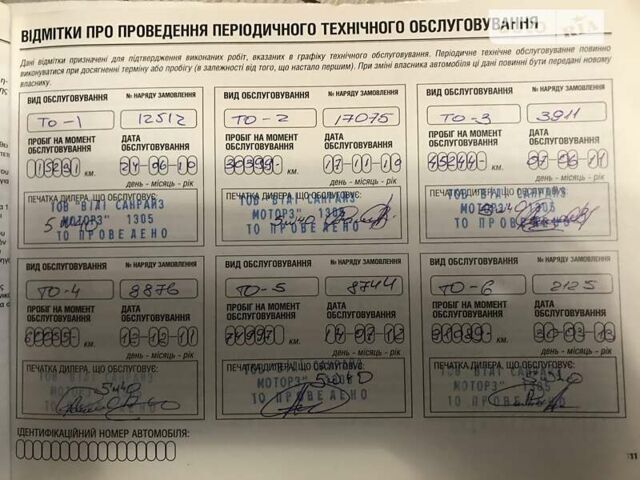 ВІДМІТКИ ПРО ПРОВЕДЕННЯ ПЕРІОДИЧНОГО ТЕХНІЧНОГО ОБСЛУГОВУВАННЯ
Дані відмітки призначені для підтвердження виконаних робіт, вказаних в графіку технічного обслуговування. Періодичне технічне обслуговування повинно
виконуватися при досягненні терміну або пробігу (в залежності від того, що настало першим). При зміні власника автомобіля ці дані повинні бути передані новому
власнику.
ВИД ОБСЛУГОВУВАННЯ № НАРЯДУ ЗАМОВЛЕННЯ
ТО-1 12512
ПРОБІГ НА МОМЕНТ ОБСЛУГОВУВАННЯ ДАТА ОБСЛУГОВУВАННЯ
015231 км. 24-06-10
день - місяць - рік
ПЕЧАТКА ДИЛЕРА, ЩО ОБСЛУГОВУЄ:
ТОВ "ВТАТ САНРАЙЗ
МОТОРЗ" 1305
ТО ПРОВЕДЕНО
5w40
ВИД ОБСЛУГОВУВАННЯ № НАРЯДУ ЗАМОВЛЕННЯ
ТО-2 17075
ПРОБІГ НА МОМЕНТ ОБСЛУГОВУВАННЯ ДАТА ОБСЛУГОВУВАННЯ
30399 км. 17-11-10
день - місяць - рік
ПЕЧАТКА ДИЛЕРА, ЩО ОБСЛУГОВУЄ:
ТОВ "ВТАТ САНРАЙЗ
МОТОРЗ" 1305
ТО ПРОВЕДЕНО
5w40
ВИД ОБСЛУГОВУВАННЯ № НАРЯДУ ЗАМОВЛЕННЯ
ТО-3 3911
ПРОБІГ НА МОМЕНТ ОБСЛУГОВУВАННЯ ДАТА ОБСЛУГОВУВАННЯ
45244 км.
день - місяць - рік
ПЕЧАТКА ДИЛЕРА, ЩО ОБСЛУГОВУЄ:
ТОВ "ВТАТ САНРАЙЗ
МОТОРЗ" 1305
ТО ПРОВЕДЕНО
ВИД ОБСЛУГОВУВАННЯ № НАРЯДУ ЗАМОВЛЕННЯ
ТО-4 8876
ПРОБІГ НА МОМЕНТ ОБСЛУГОВУВАННЯ ДАТА ОБСЛУГОВУВАННЯ
км.
день - місяць - рік
ПЕЧАТКА ДИЛЕРА, ЩО ОБСЛУГОВУЄ:
ТОВ "ВТАТ САНРАЙЗ
МОТОРЗ"
ТО ПРОВЕДЕНО
5w40
ВИД ОБСЛУГОВУВАННЯ № НАРЯДУ ЗАМОВЛЕННЯ
ТО-5 8744
ПРОБІГ НА МОМЕНТ ОБСЛУГОВУВАННЯ ДАТА ОБСЛУГОВУВАННЯ
км.
день - місяць - рік
ПЕЧАТКА ДИЛЕРА, ЩО ОБСЛУГОВУЄ:
МОТОРЗ"
ТО ПРОВЕДЕНО
5w40
ВИД ОБСЛУГОВУВАННЯ № НАРЯДУ ЗАМОВЛЕННЯ
ТО-6 2125
ПРОБІГ НА МОМЕНТ ОБСЛУГОВУВАННЯ ДАТА ОБСЛУГОВУВАННЯ
км.
день - місяць - рік
ПЕЧАТКА ДИЛЕРА, ЩО ОБСЛУГОВУЄ:
ТОВ "ВТАТ САНРАЙЗ
МОТОРЗ" 1305
ТО ПРОВЕДЕНО
5w40
ІДЕНТИФІКАЦІЙНИЙ НОМЕР АВТОМОБІЛЯ:
11